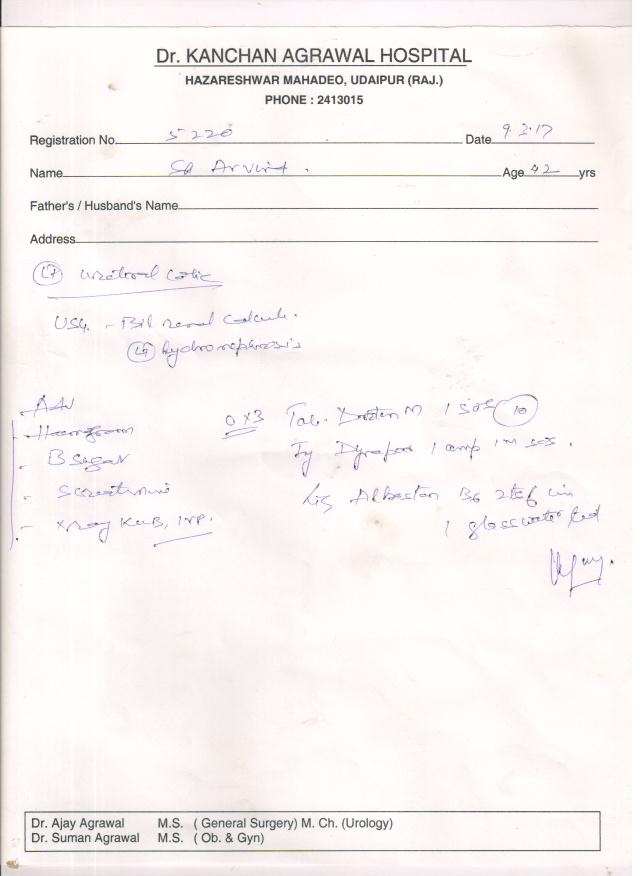 Dr. KANCHAN AGRAWAL HOSPITAL
HAZARESHWAR MAHADEO, UDAIPUR (RAJ.)
PHONE : 2413015
Registration No. 5220 Date 9.3.17
Name Arvind . Age 42 yrs
Father's / Husband's Name
Address
(Lt) ureteral colic
USG. - Bil renal calculi.
(Lt) hydronephrosis
B sugar
S creatinine
Xray KUB, IVP.
0 x 3 Tab. M 1 SOS (10)
1 amp IM SOS .
B6 2tsf in
1 glass water
Dr. Ajay Agrawal M.S. ( General Surgery) M. Ch. (Urology)
Dr. Suman Agrawal M.S. ( Ob. & Gyn)